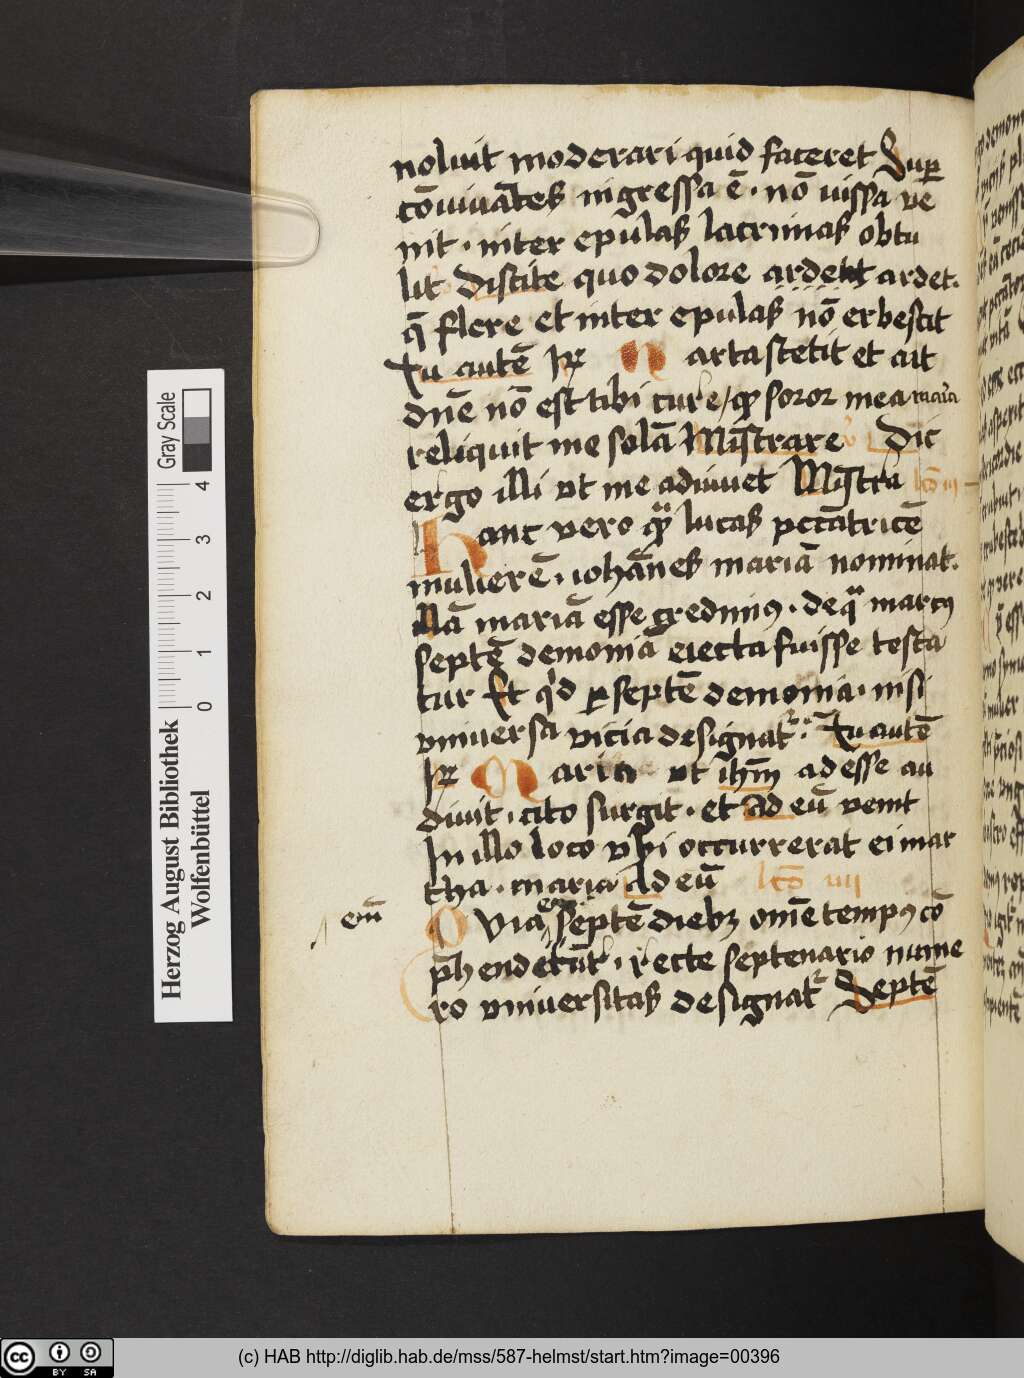 noluit moderari quid faceret Sup̲
cōuiuātes ingressa ē · nō iussa ve
nit · inter epulas lacrimas obtu
lit Discite quo dolore ardet
q̄ flere et inter epulas nō erbescit
Tu autē R̵ Martastetit et ait
dn̄e nō est tibi cure / qꝫ soror mea maria
reliquit me solā Mīstrare Dic
ergo illi vt me adiuuet Mīstra lc̄o iii
Hanc vero qͣ lucas pccātricē
mulierē · iohānes mariā nominat ·
illā mariā esse credimꝰ · de qͣ marcꝰ
septē demonia eiecta fuisse testa
tur Et qͥd ꝑ septē demonia · nisi
vniuersa vicia designatᷣ · Tu autē
R̵ Maria vt ih̄m adesse au
diuit · cito surgit · et ad eū venit
In illo loco vbi occurrerat ei mar
tha · maria Ad eū lc̄o iiii
em̄ Quia septē diebꝫ om̄e tempꝰ cō
p̄hendit᷑ · recte septenario nume
ro vniuersitas designatᷣ Septē
Herzog August Bibliothek
Wolfenbüttel
Gray Scale
0 1 2 3 4
cc BY SA
(c) HAB http://diglib.hab.de/mss/587-helmst/start.htm?image=00396